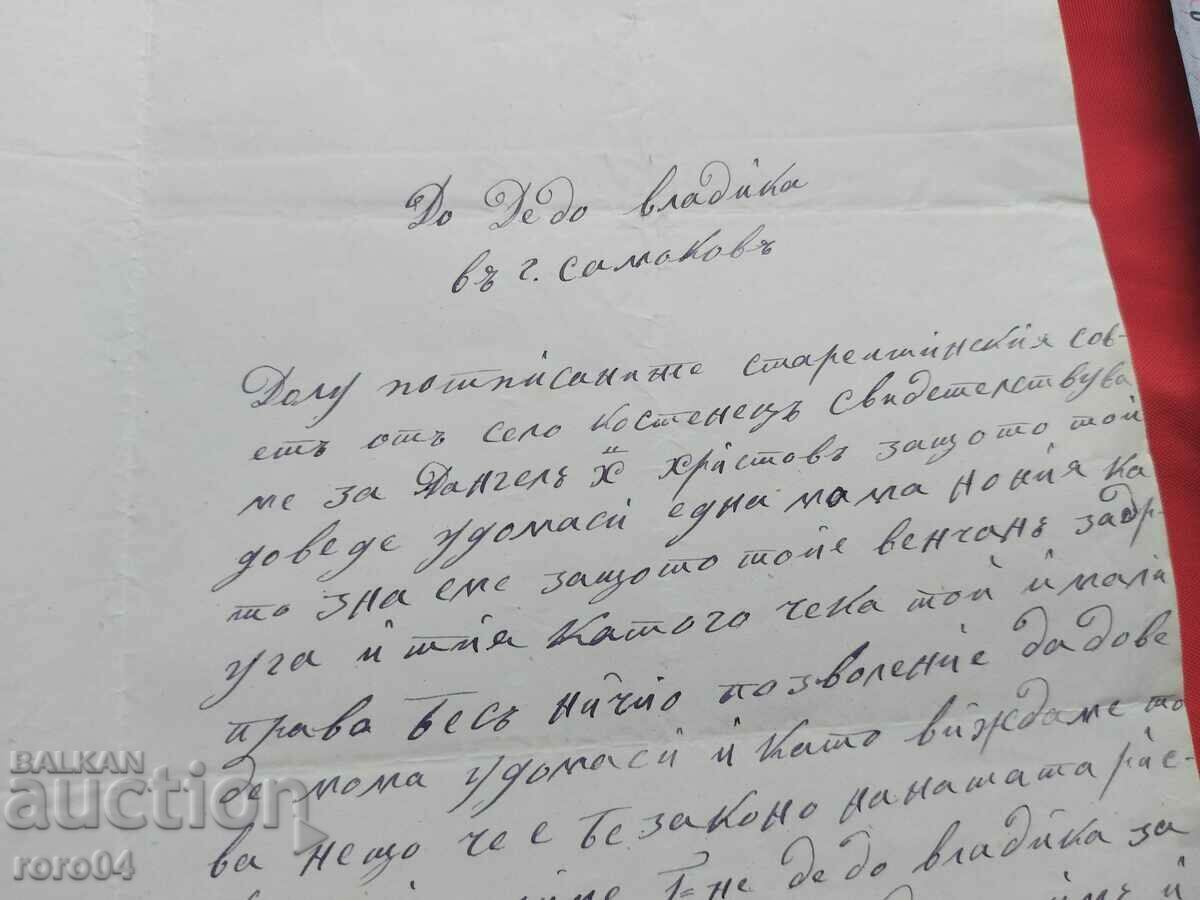 До Дедо владіка
въ г. самоковъ
Долу потпісаните старешинския сов-
етъ отъ село костенецъ свидетелствува
ме за Дангелъ Х̈ хрістовъ защото той
доведе удомаси една мома но нія ка
то зна еме защото тойе венчанъ за др-
уга и тия катого чека той ималі
права бесъ нічіо позволеніе да дове
де мома удомаси и като віждаме то
ва нещо че е безаконо на нашата рае-
Г=не дедо владіка за
BALKAN
auction
roro04